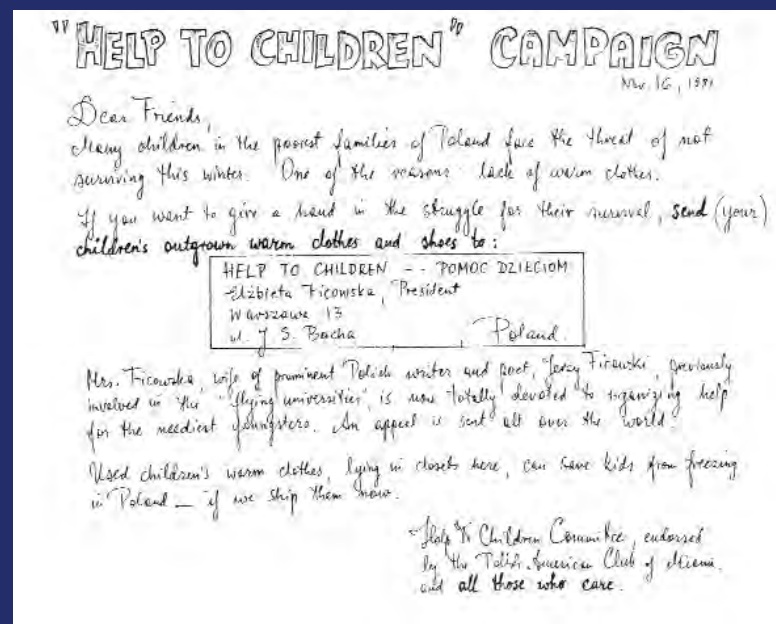 "HELP TO CHILDREN" CAMPAIGN
Nov. 16, 1981
Dear Friends,
Many children in the poorest families of Poland face the threat of not
surviving this winter. One of the reasons - lack of warm clothes.
If you want to give a hand in the struggle for their survival, send (your)
children's outgrown warm clothes and shoes to:
HELP TO CHILDREN -- POMOC DZIECIOM
Elżbieta Ficowska, President
Warszawa 13
ul. J. S. Bacha Poland
Mrs. Ficowska, wife of prominent Polish writer and poet, Jerzy Ficowski, previously
involved in the "flying universities", is now totally devoted to organizing help
for the neediest youngsters. An appeal is sent all over the world.
Used children's warm clothes, lying in closets here, can save kids from freezing
in Poland — if we ship them now.
Help To Children Committee, endorsed
by the Polish American Club of Miami
and all those who care.